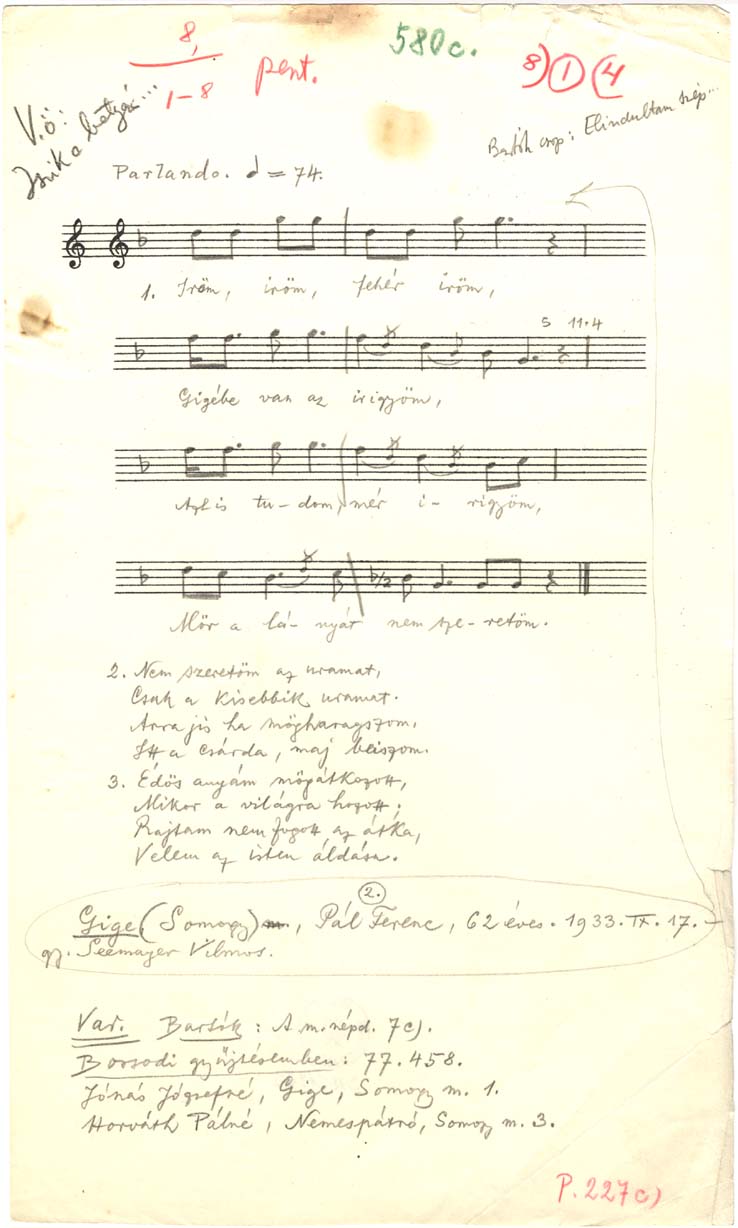 8,
1-8
pent.
580c.
8) 1 (4
V.ö:
Bartók csop: Elindultam szép...
Parlando. = 74.
1. Iröm, iröm, fehér iröm,
5 11.4
Gigébe van az irigyöm,
Azt is tu-dom, mér i- rigyöm,
b/2
Mör a lá- nyát nem sze-retöm.
2. Nem szeretöm az uramat,
Csak a kisebbik uramat.
Arra jis ha mögharagszom,
Itt a csárda, maj beiszom.
3. Édös anyám möpátkozott,
Mikor a világra hozott;
Rajtam nem fogott az átka,
Velem az isten áldása.
2.
Gige (Somogy) m., Pál Ferenc, 62 éves. 1933. IX. 17.
gy. Seemayer Vilmos.
Var. Bartók: A m. népd. 7c).
Borsodi gyüjtésemben: 77. 458.
Jónás Józsefné, Gige, Somogy m. 1.
Horváth Pálné, Nemespátró, Somogy m. 3.
P. 227c)